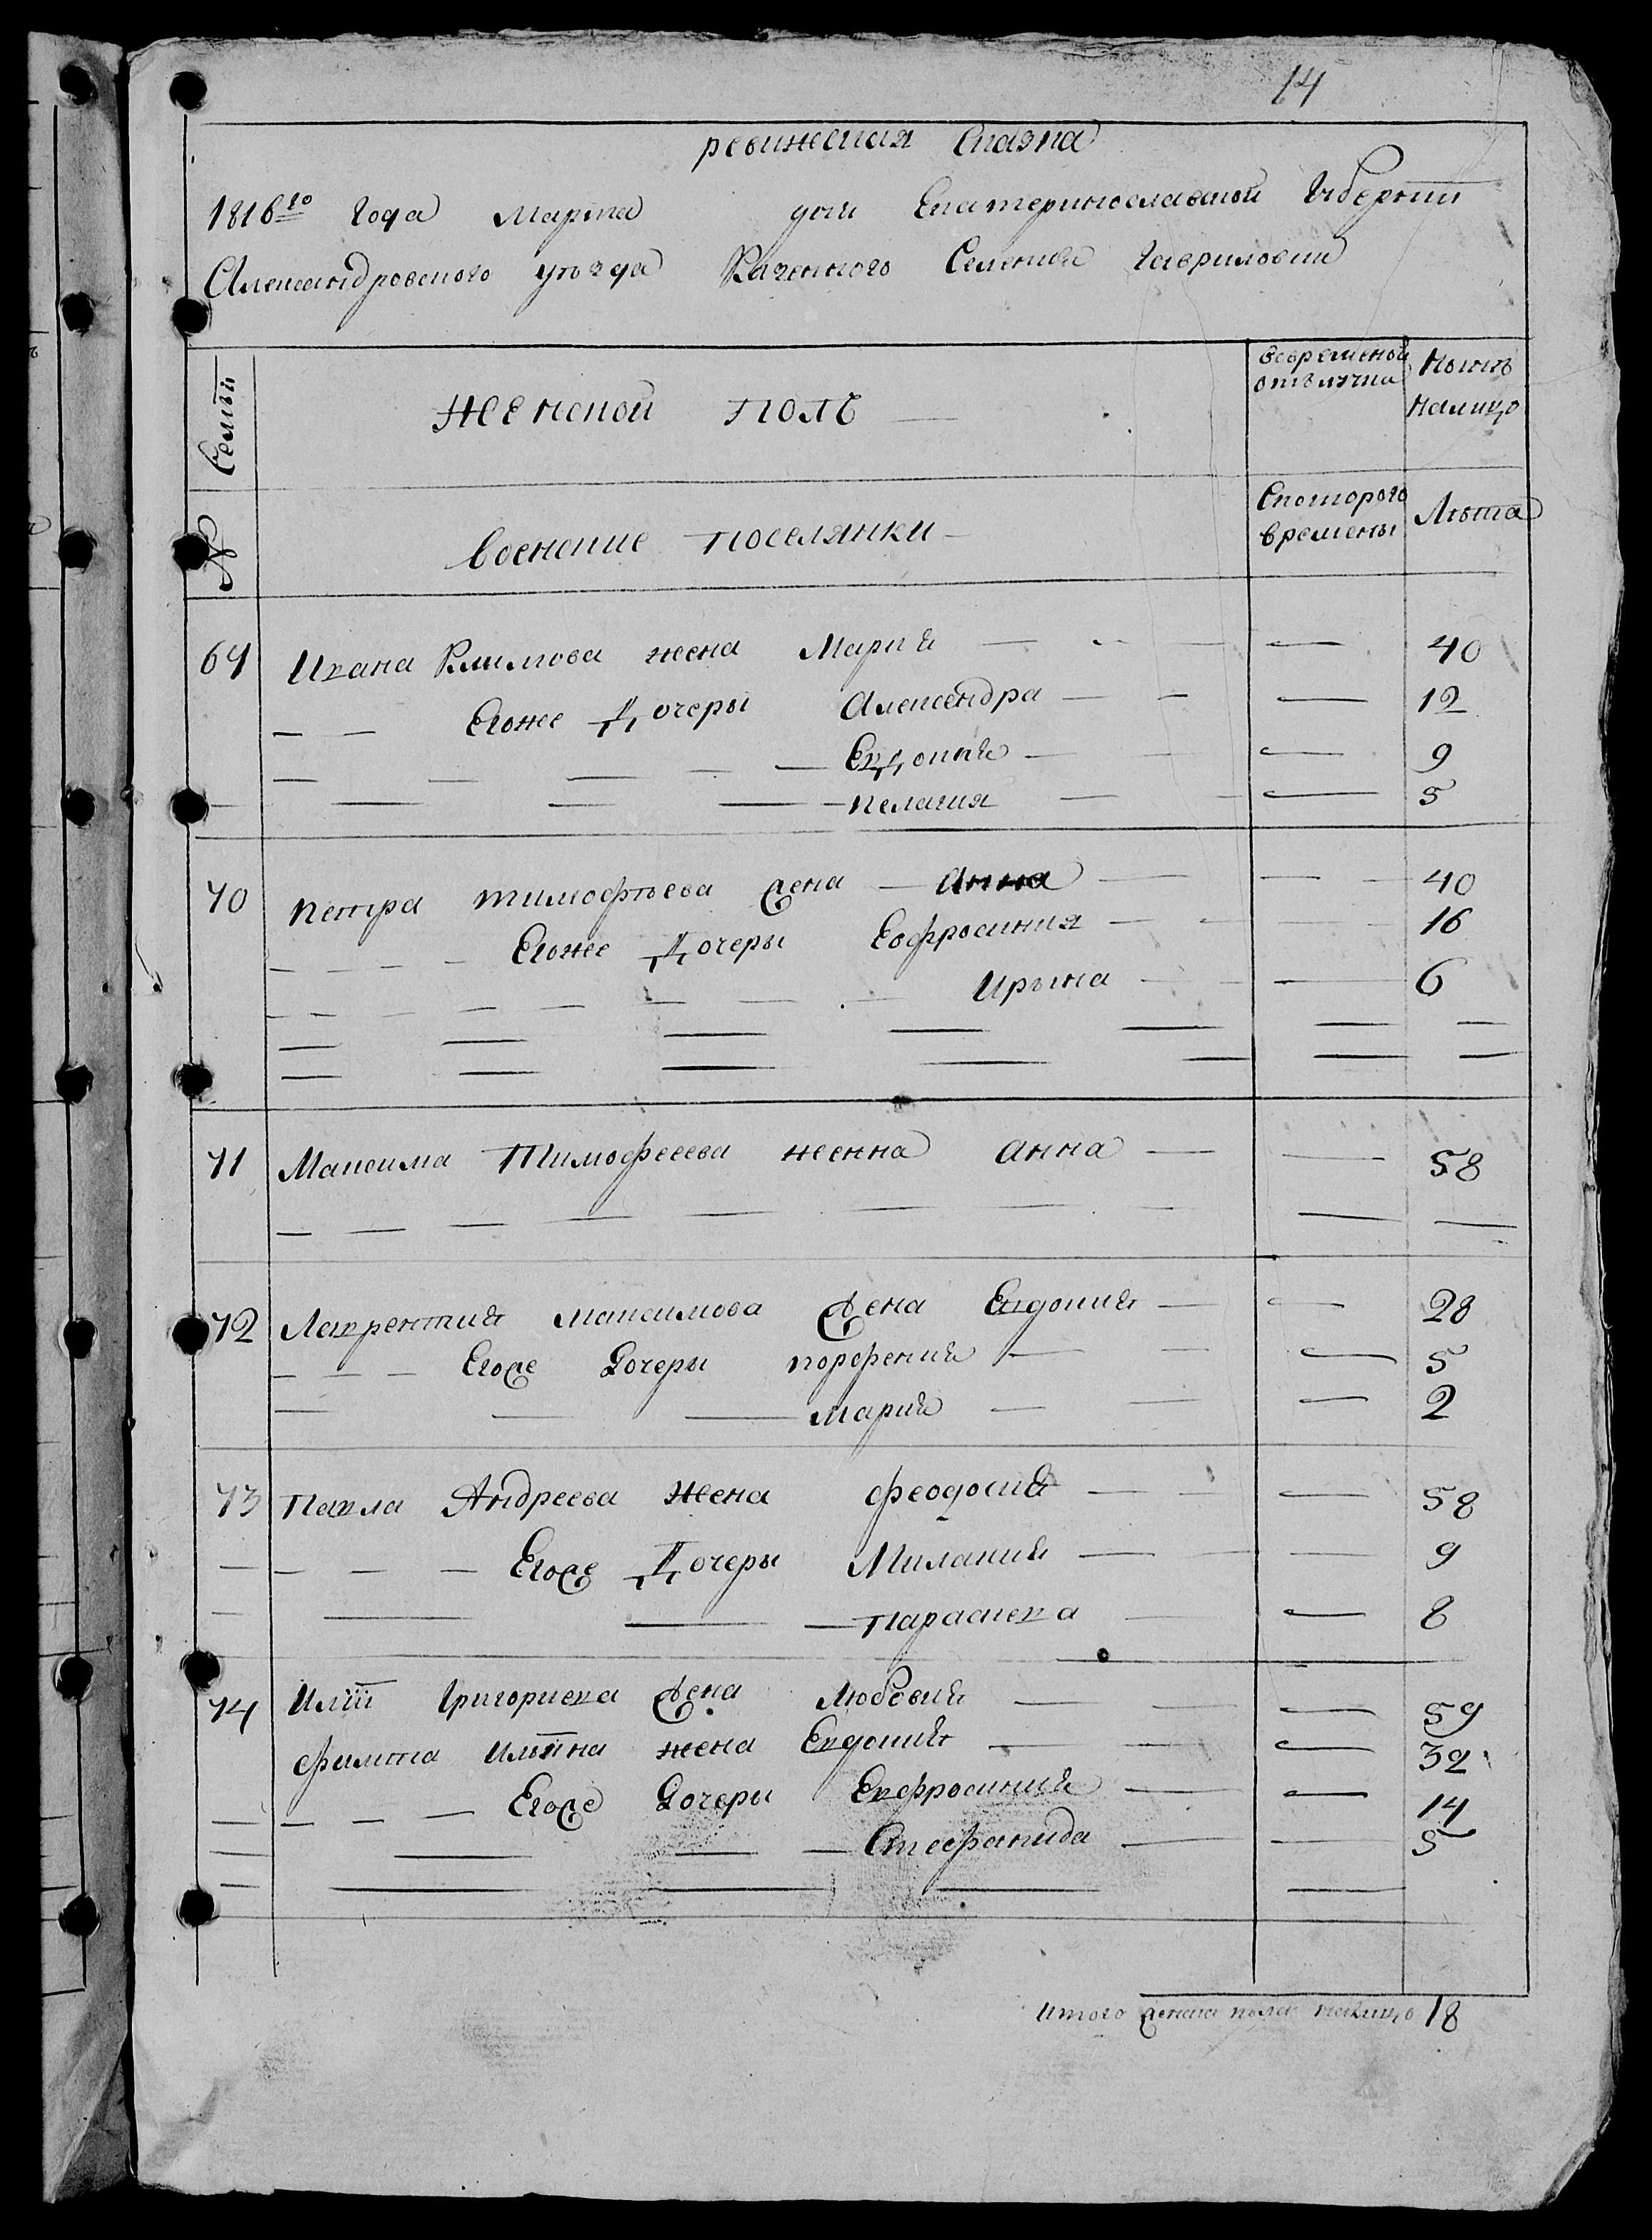 14
ревижская Сказка
1816го Года Марта дня Екатеринославской Губернии
Александровского уезда Казенного Селения Гавриловки
Семьи
женской полъ
вовременой отълучки
Нынѣ налицо
№
военские поселянки
Скоторого времены
Лѣта
69 Ивана Климова жена Марія — 40
Егоже Дочеры Александра — 12
Евдокия — 9
Пелагия — 5
70 Петра тимофѣева жена — Анна — 40
Егоже Дочеры Евфросиния — 16
Ирына — 6
71 Максима Тимофееева женна Анна — 58
72 Лаврентия Максимова жена Евдокия — 28
Егоже Дочеры порфения — 5
Мария — 2
73 Павла Андреева жена феодосия — 58
Егоже Дочеры Милания — 9
Параскева — 8
74 Иліи Григориева жена Любовия — 59
филипа Ильина жена Евдокия — 32
Егоже Дочеры Евфросиния — 14
Стефанида — 5
Итого женска пола налицо 18